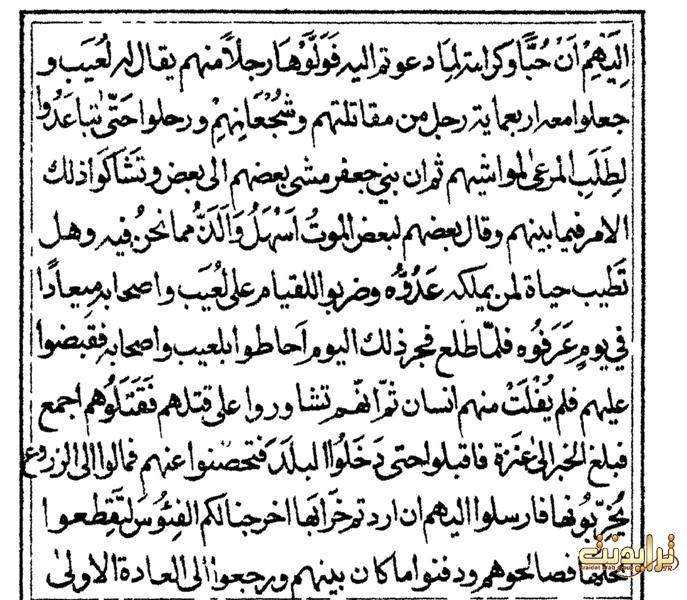 اِلَيْهِمْ اَنْ حُبًّا وكرامة لِمَا دعوتم اليه فَوَلَّوْهَا رجلاً منهم يقال له لُعَيب و
جعلوا معه اربعماية رجل من مقاتلتهم وشُجْعَانِهِمْ ورحلوا حَتّى يتباعَدُوا
لِطَلَبِ المرعىٰ لمواشيهم ثم ان بني جعفر مشى بعضهم الى بعض وتَشَاكَوا ذلك
الامر فيما بينهم وقال بعضهم لبعض الموتُ اَسْهَلُ وَاَلَذُّ مما نحنُ فيه وهل
تَطيب حياة لمن يملكه عَدُوُّه وضربوا للقيام على لُعَيَب واصحابه ميعادًا
في يومٍ عَرَفُوه فلمّا طلع فجر ذلك اليوم اَحاطوا بلعيب واصحابه فقبضوا
عليهم فلم يُفْلَتْ منهم انسان ثمّ انّهم تشاوروا على قتلهم فَقَتَلُوهم اجمع
فبلغ الخبر الىٰ عنَزة فاقبلوا حتى دَخَلُوا البلدَ فتحصّنوا عنهم فمالوا الى الزروع
يُخرِّبُونها فارسلوا اليهم ان اردتم خَرَابَها اخرجنا لكم الفِئُوسَ لتَقطعوا
فصالحوهم ودفنوا ما كان بينهم ورجعوا الى العادة الاولىٰ
ترايدنت